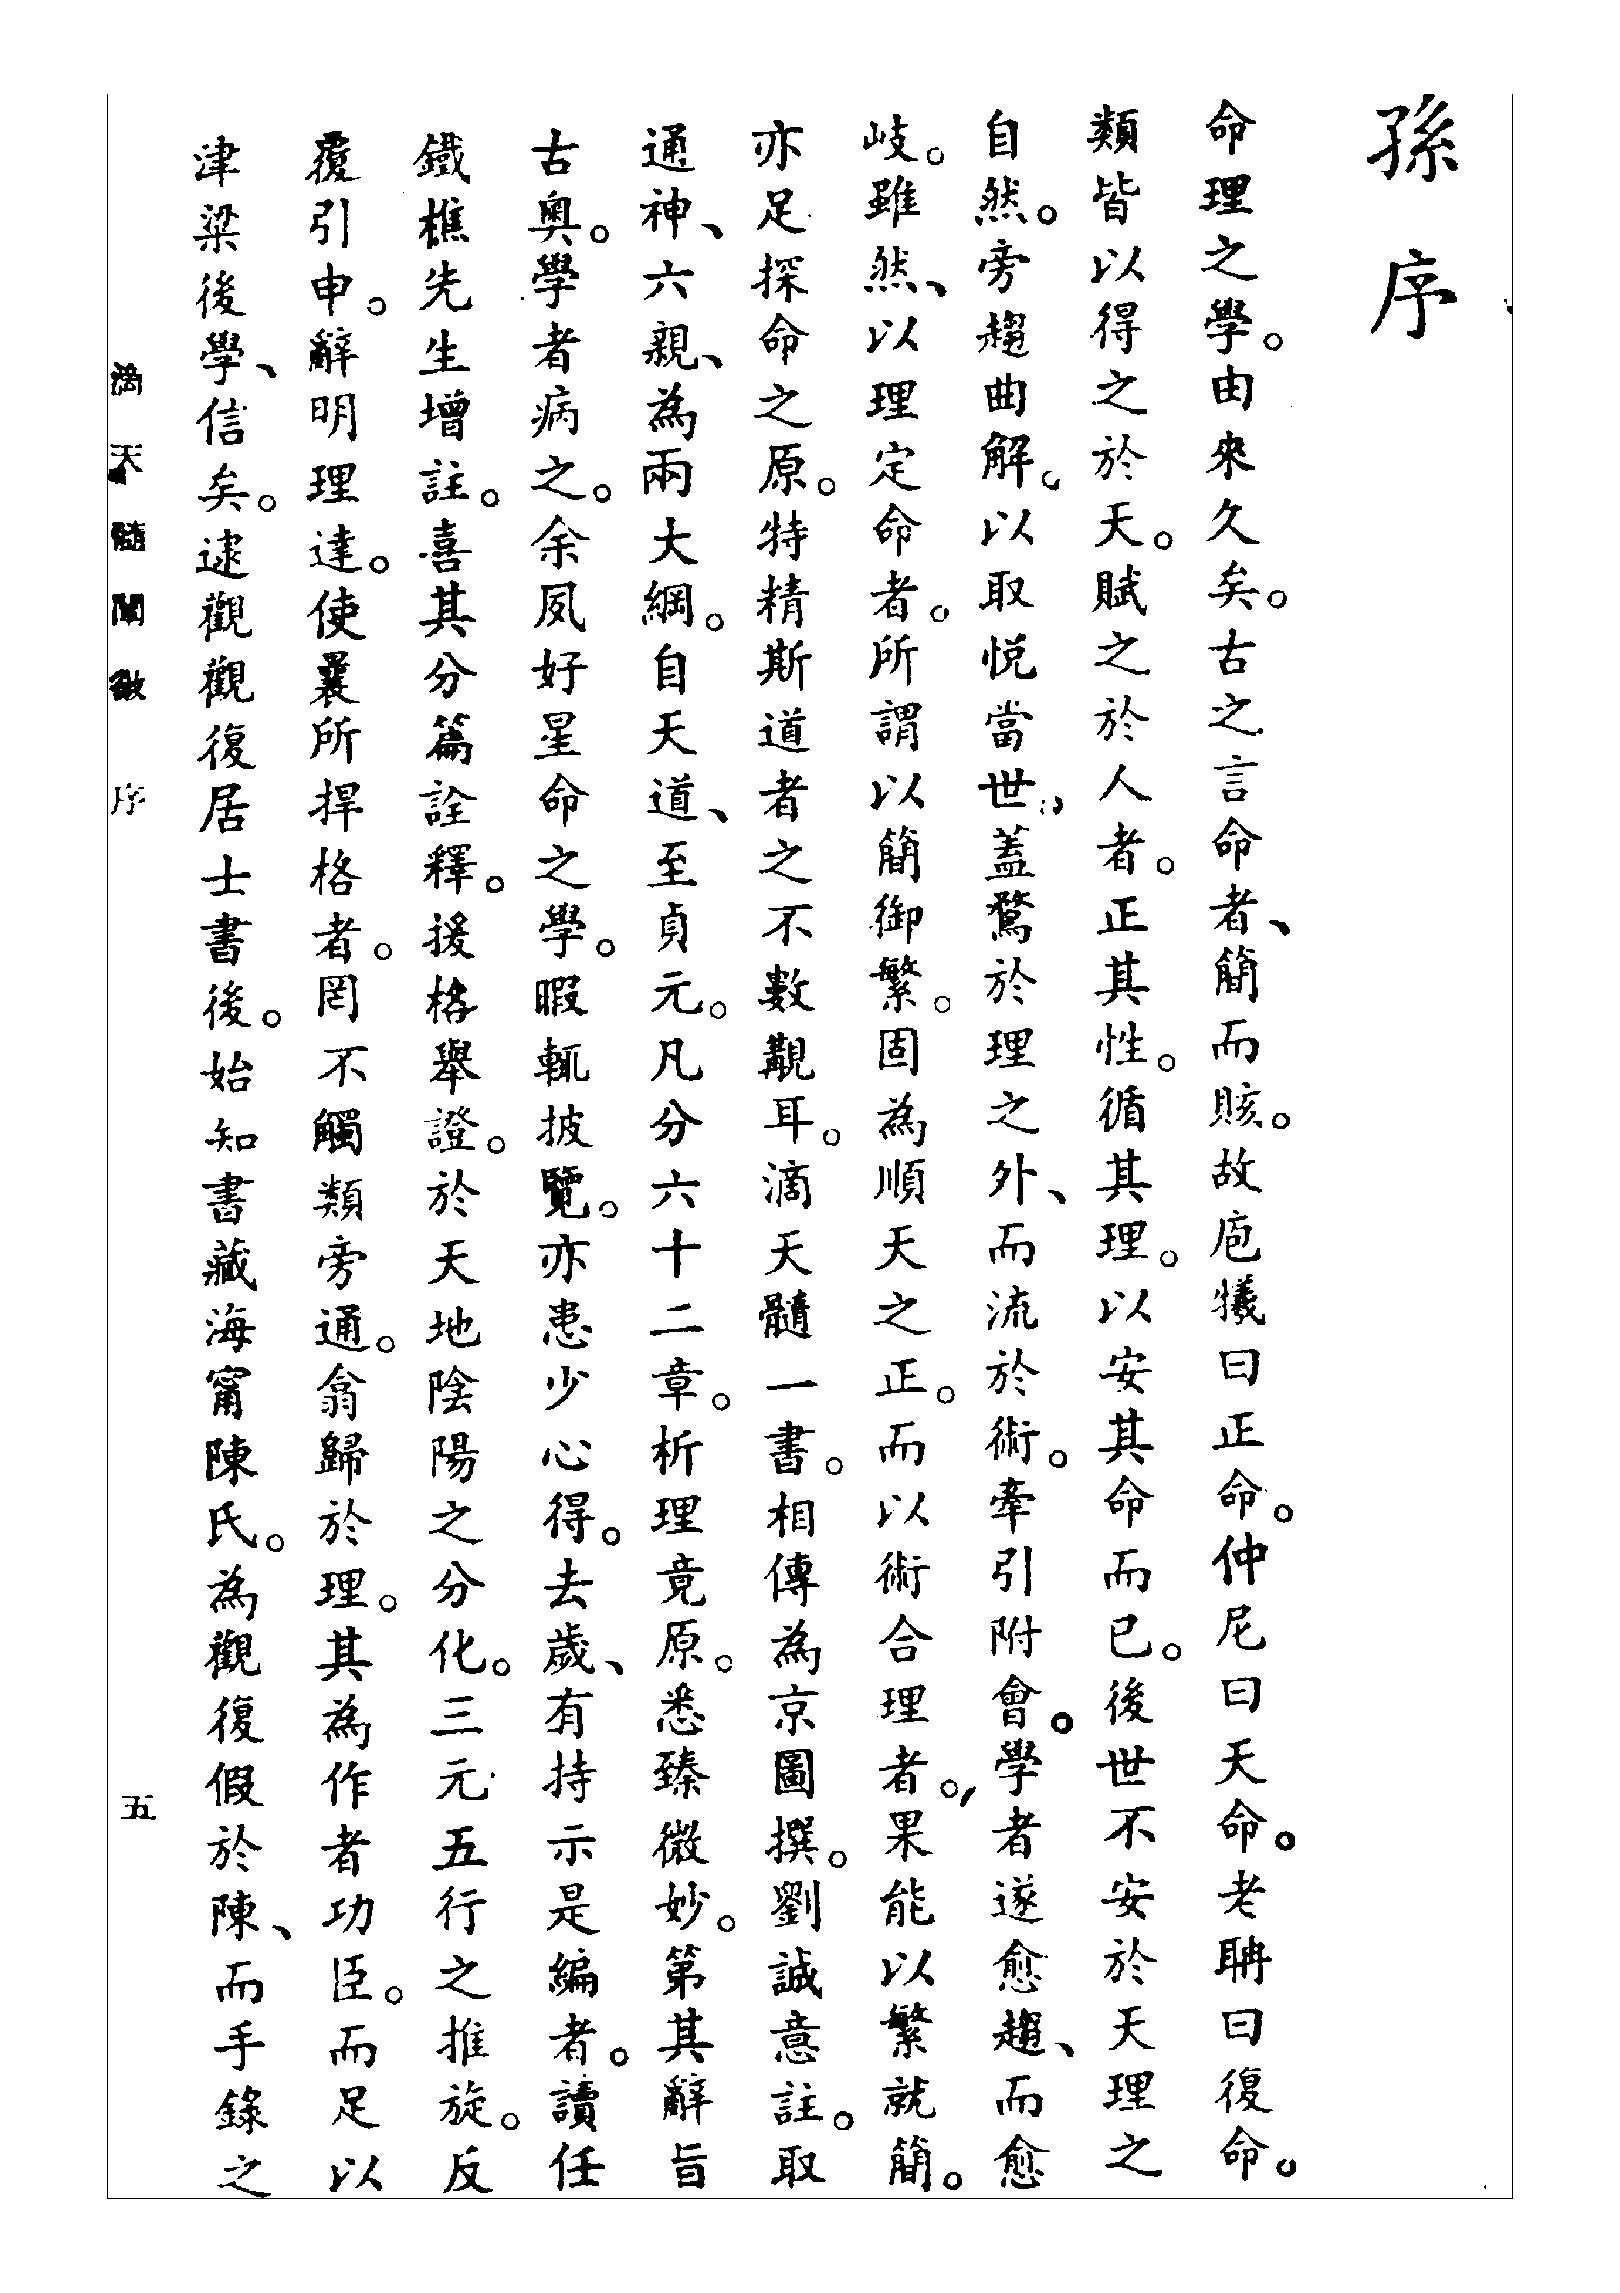 孫序
命理之學。由來久矣。古之言命者、簡而賅。故庖犧曰正命。仲尼曰天命。老聃曰復命。
類皆以得之於天。賦之於人者。正其性。循其理。以安其命而已。後世不安於天理之
自然。旁趨曲解。以取悅當世、蓋騖於理之外、而流於術。牽引附會。學者遂愈趨、而愈
岐。雖然、以理定命者。所謂以簡御繁。固為順天之正。而以術合理者。果能以繁就簡。
亦足探命之原。特精斯道者之不數覯耳。滴天髓一書。相傳為京圖撰。劉誠意註。取
通神、六親、為兩大綱。自天道、至貞元。凡分六十二章。析理竟原。悉臻微妙。第其辭旨
古奧。學者病之。余夙好星命之學。暇輒披覽。亦患少心得。去歲、有持示是編者。讀任
鐵樵先生增註。喜其分篇詮釋。援格舉證。於天地陰陽之分化。三元五行之推旋。反
覆引申。辭明理達。使曩所捍格者。罔不觸類旁通。翕歸於理。其為作者功臣。而足以
津梁後學、信矣。逮觀觀復居士書後。始知書藏海甯陳氏。為觀復假於陳、而手錄之
滴天髓闡微 序
五